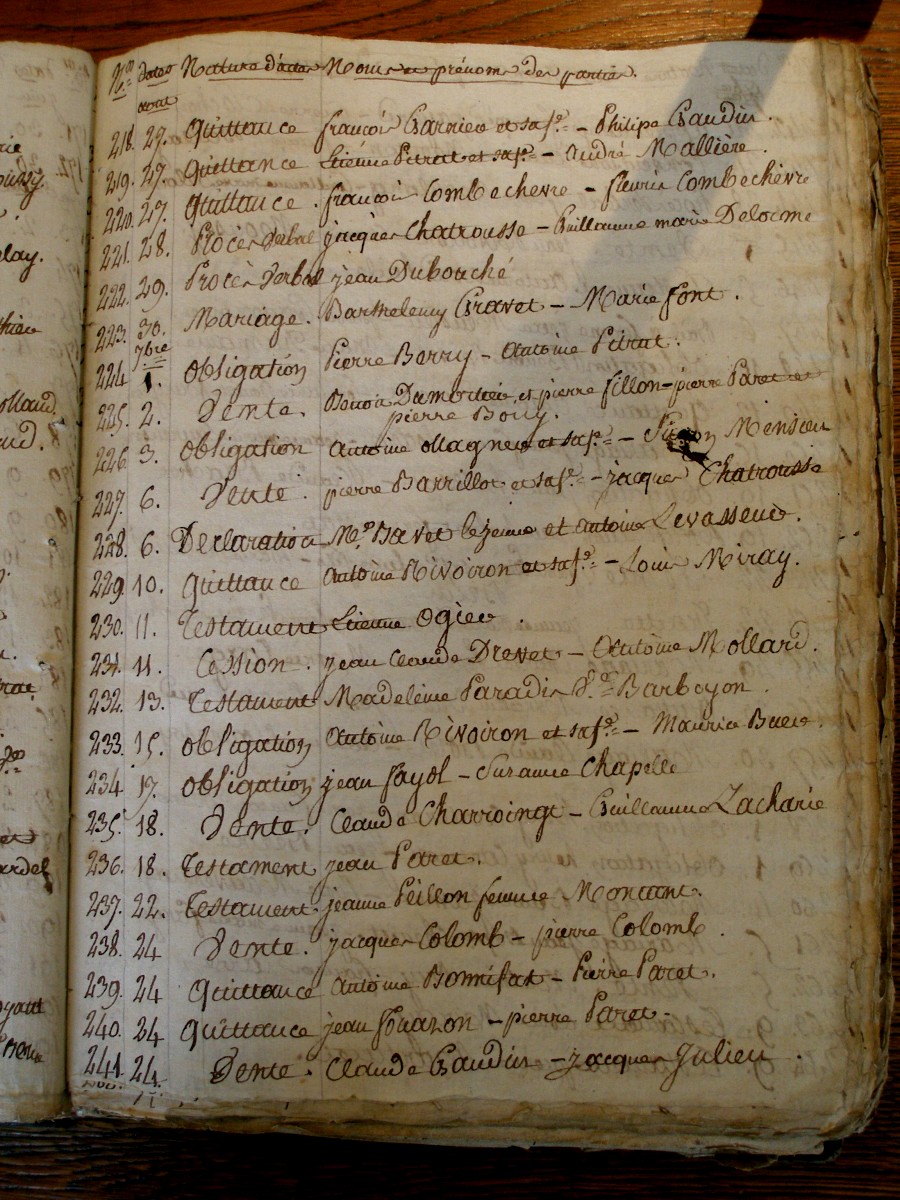 Nos dates Nature d'actes Noms et prénoms des parties.
aout
218. 27. Quittance françois Garnier et sa fe = - Philipe Gaudin.
219. 27. Quittance Etienne Pitrat et sa fe = - André Mallière.
220. 27. Quittance. françois Combechevre - fleurie Combechèvre
221. 28. Procès Verbal jacques Chatrousse - Guillaume marie Delorme
222. 29. Procès Verbal jean Dubouché
223. 30. Mariage. Barthelemy Gravet - Marie font.
7bre
224 1. Obligation Pierre Berry - Antoine Pitrat.
225. 2. Vente. Benoit et pierre fillon - pierre Paret et
pierre Bouy.
226. 3. Obligation Antoine Ollagnier et sa fe = - Simon Mensieu
227. 6. Vente. pierre Barrillot et sa fe = - jacques Chatrousse
228. 6. Declaration Me Bavet le jeune et Antoine Levasseur.
229. 10. Quittance Antoine Rivoiron et sa fe = - Louis Miray.
230. 11. Testament Etienne Ogier.
231. 11. Cession. jean Claude Drevet - Antoine Mollard.
232. 13. Testament Madeleine Paradis Ve = Barboyon.
233. 15. Obligation Antoine Rivoiron et sa fe = - Maurice Buer.
234 17. Obligation jean fayol - Suzanne Chapelle
235. 18. Vente. Claude Charroingt - Guillaume Zacharie
236. 18. Testament jean Paret.
237. 22. Testament. jeanne Peillon femme Montant.
238. 24 Vente. jacques Colomb - pierre Colomb.
239. 24 Quittance Antoine Bonnifat - Pierre Paret.
240. 24 Quittance jean fouanon - pierre Paret -
241. 24. Vente. Claude Gaudin - jacques Julien.